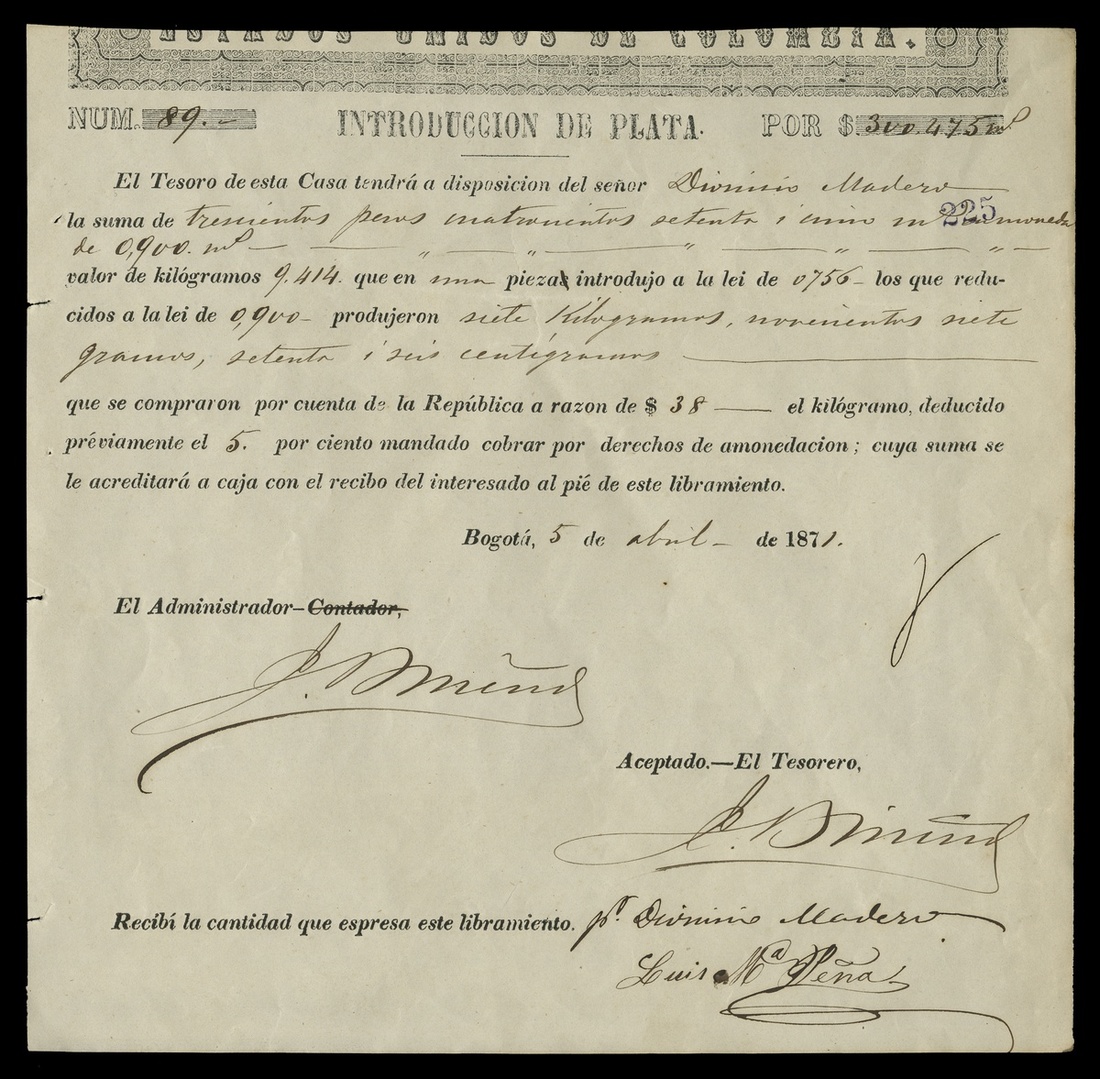 ESTADOS UNIDOS DE COLOMBIA.
NUM. 89.- INTRODUCCION DE PLATA. POR $ 300.475 ml
El Tesoro de esta Casa tendrá a disposicion del señor Dionisio Madero
la suma de trescientos pesos cuatrocientos setenta i cinco ml 225 moneda
de 0,900. ml — " — " — " — " —
valor de kilógramos 9.414. que en una pieza introdujo a la lei de 0756- los que redu-
cidos a la lei de 0,900- produjeron siete Kilogramos, novecientos siete
gramos, setenta i seis centígramos
que se compraron por cuenta de la República a razon de $ 38 — el kilógramo, deducido
préviamente el 5. por ciento mandado cobrar por derechos de amonedacion; cuya suma se
le acreditará a caja con el recibo del interesado al pié de este libramiento.
Bogotá, 5 de abril - de 1871.
El Administrador-Contador,
Aceptado.—El Tesorero,
Recibí la cantidad que espresa este libramiento. pr. Dionisio Madero
Luis Ma Peña